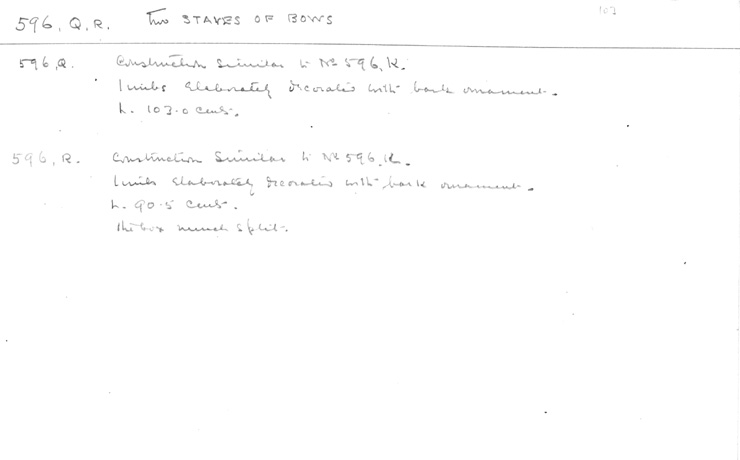 107
596, Q.R. Two STAVES OF BOWS
596,Q. Construction Similar to No 596,K.
Limbs Elaborately Decorated with bark ornament.
L. 103.0 cents.
596, R. Construction Similar to No 596,K.
Limbs Elaborately Decorated with bark ornament.
L. 90.5 cents.
much split.